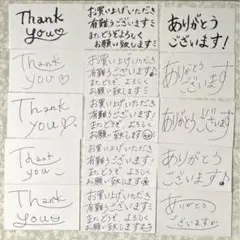 Thank
you♡
お買い上げいただき
有難うございます!
またどうぞよろしく
お願い致します
ありがとう
ございます!
Thank
You♡
お買い上げいただき
有難うございます♪
またどうぞよろしく
お願い致します!
ありがとう
ございます!
Thank
You♡
お買い上げいただき
有難うございます!
またどうぞよろしく
お願い致します
ありがとう
ございます!
Thank
you
お買い上げいただき
有難うございます!
またどうぞよろしく
お願い致します
ありがとう
ございます♪
Thank
You
お買い上げいただき
有難うございます
またどうぞよろしく
お願い致します
ありがとう
ございます